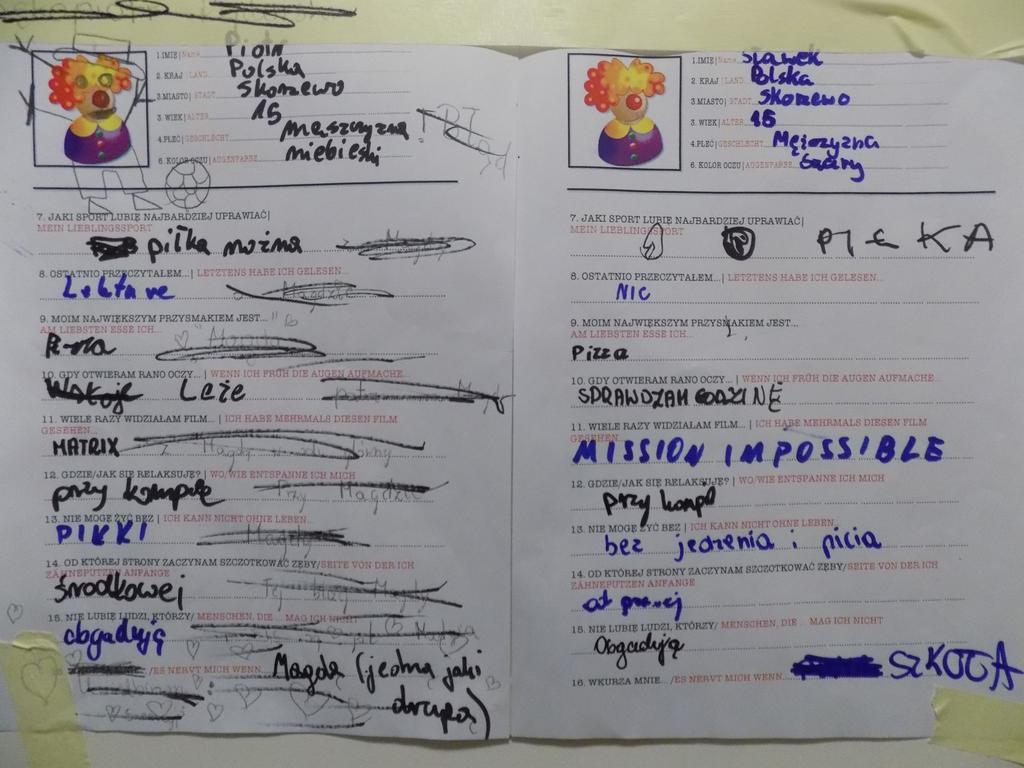 1.IMIĘ|Name Piotr
2. KRAJ |LAND Polska
3.MIASTO| STADT Skorzewo
3. WIEK|ALTER 15
4.PŁEĆ|GESCHLECHT męszczyzna
6. KOLOR OCZU|AUGENFARBE niebieski
7. JAKI SPORT LUBIĘ NAJBARDZIEJ UPRAWIAĆ|
MEIN LIEBLINGSSPORT
piłka nożna
8. OSTATNIO PRZECZYTAŁEM... | LETZTENS HABE ICH GELESEN...
Lekture Magdzie
9. MOIM NAJWIĘKSZYM PRZYSMAKIEM JEST...
AM LIEBSTEN ESSE ICH...
10. GDY OTWIERAM RANO OCZY... | WENN ICH FRÜH DIE AUGEN AUFMACHE...
Leże
11. WIELE RAZY WIDZIAŁAM FILM... | ICH HABE MEHRMALS DIESEN FILM
GESEHEN...
MATRIX
12. GDZIE/JAK SIĘ RELAKSUJĘ? | WO/WIE ENTSPANNE ICH MICH
przy kompie Przy Magdzie
13. NIE MOGĘ ŻYĆ BEZ | ICH KANN NICHT OHNE LEBEN...
PIKKI Magdy
14. OD KTÓREJ STRONY ZACZYNAM SZCZOTKOWAĆ ZĘBY/SEITE VON DER ICH
ZÄHNEPUTZEN ANFANGE
środkowej
15. NIE LUBIĘ LUDZI, KTÓRZY/ MENSCHEN, DIE ... MAG ICH NICHT
obgadują
/ES NERVT MICH WENN... Magda (jedna jaki
drupa)
1.IMIĘ|Name Sławek
2. KRAJ |LAND Polska
3.MIASTO| STADT Skorzewo
3. WIEK|ALTER 15
4.PŁEĆ|GESCHLECHT Mężczyzna
6. KOLOR OCZU|AUGENFARBE Szary
7. JAKI SPORT LUBIĘ NAJBARDZIEJ UPRAWIAĆ|
MEIN LIEBLINGSSPORT
8. OSTATNIO PRZECZYTAŁEM... | LETZTENS HABE ICH GELESEN...
NIC
9. MOIM NAJWIĘKSZYM PRZYSMAKIEM JEST...
AM LIEBSTEN ESSE ICH...
Pizza
10. GDY OTWIERAM RANO OCZY... | WENN ICH FRÜH DIE AUGEN AUFMACHE...
SPRAWDZAM GODZINĘ
11. WIELE RAZY WIDZIAŁAM FILM... | ICH HABE MEHRMALS DIESEN FILM
GESEHEN...
MISSION IMPOSSIBLE
12. GDZIE/JAK SIĘ RELAKSUJĘ? | WO/WIE ENTSPANNE ICH MICH
przy
13. NIE MOGĘ ŻYĆ BEZ | ICH KANN NICHT OHNE LEBEN...
bez jedzenia i picia
14. OD KTÓREJ STRONY ZACZYNAM SZCZOTKOWAĆ ZĘBY/SEITE VON DER ICH
ZÄHNEPUTZEN ANFANGE
od prawej
15. NIE LUBIĘ LUDZI, KTÓRZY/ MENSCHEN, DIE ... MAG ICH NICHT
Obgadują
16. WKURZA MNIE... /ES NERVT MICH WENN... SZKOŁA